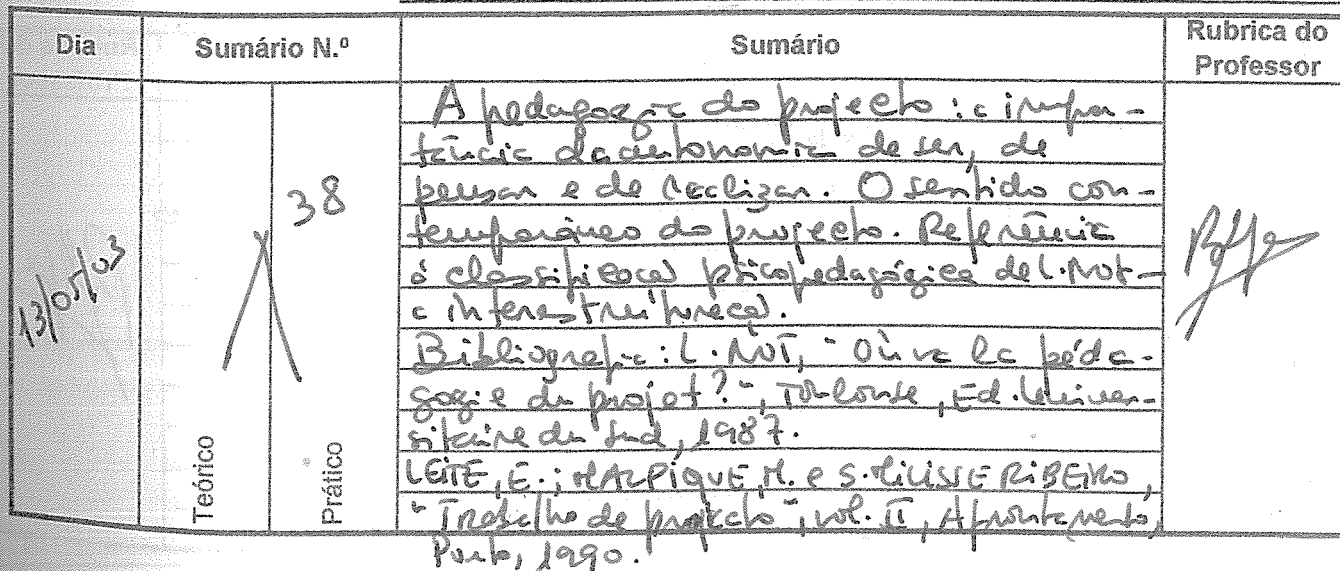 Dia Sumário N.º Sumário Rubrica do Professor
13/05/03
38
Teórico
Prático
A pedagogia do projecto: a impor-
tância da autonomia de ser, de
pensar e de realizar. O sentido con-
temporâneo do projecto. Referência
à classificação psicopedagógica de L. Not -
a interestrutural.
Bibliografia: L. NOT, "Où va la péda-
gogie du projet?", Toulouse, Ed. Univer-
sitaire du Sud, 1987.
LEITE, E.; MALPIQUE, M. e S. RIBEIRO,
"Trabalho de projecto", vol. II, Afrontamento,
Porto, 1990.